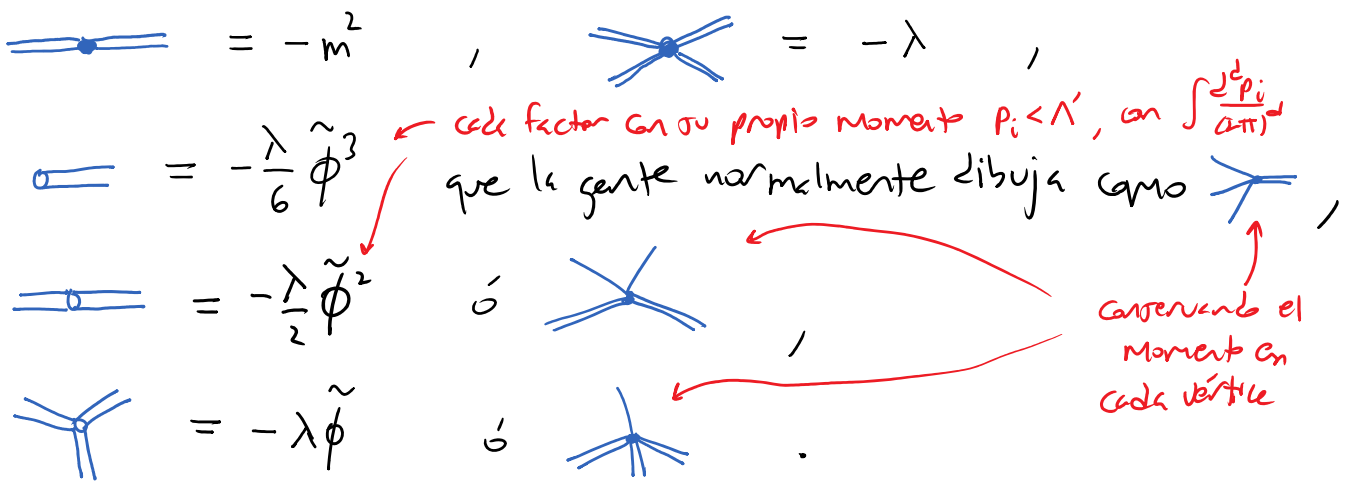 = -m² , = -λ ,
cada factor con su propio momento pᵢ < Λ', con ∫ dᵈpᵢ/(2π)ᵈ
= -λ/6 φ̃³ que la gente normalmente dibuja como ,
= -λ/2 φ̃² ó ,
conservando el
momento en
cada vértice
= -λφ̃ ó .